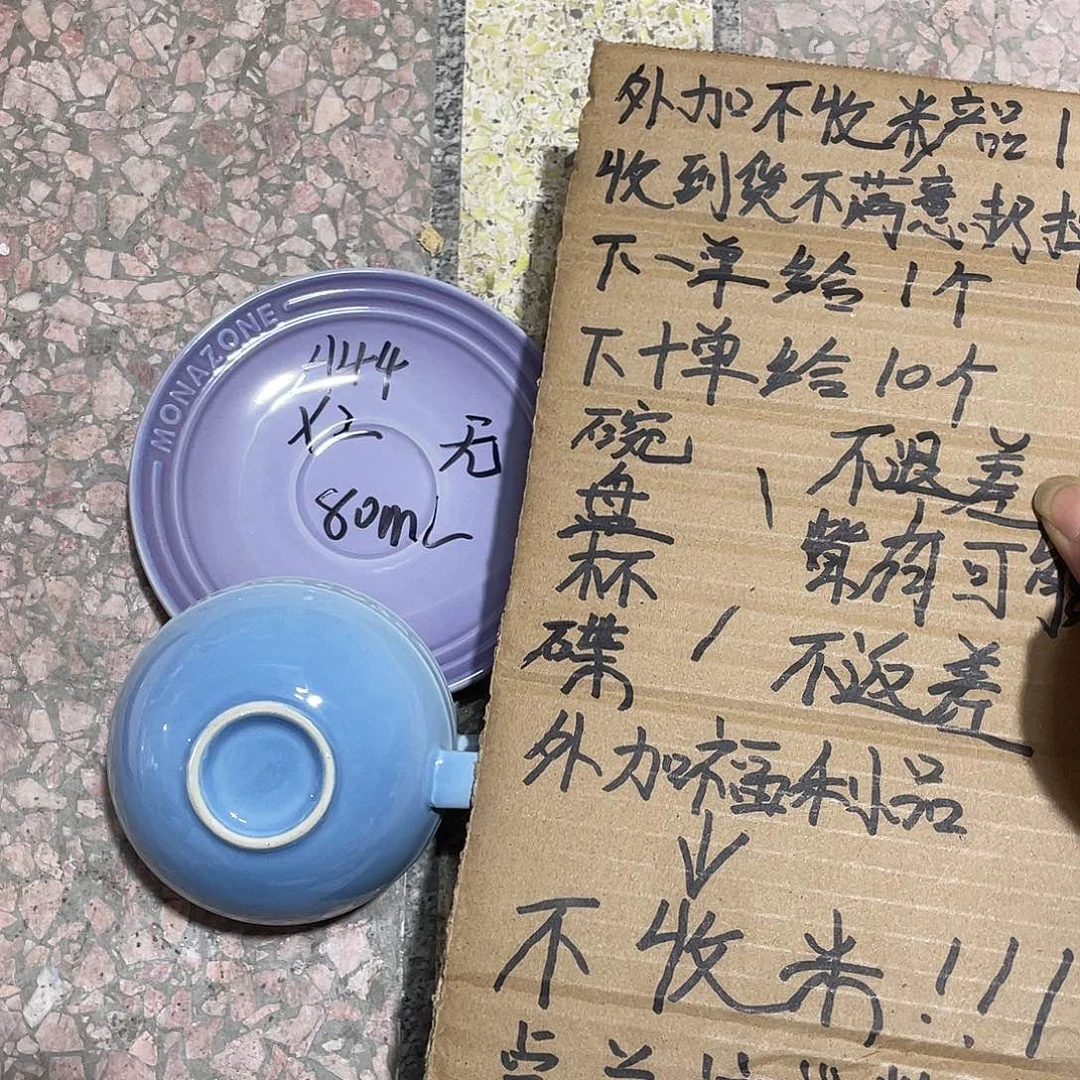 MONAZONE
A44
X2
无
80mL
外加不收米产品 1
收到货不满意
下一单给1个
下十单给10个
碗
盘
杯
碟
不退差
可能
不返差
外加福利品
↓
不收米!!!